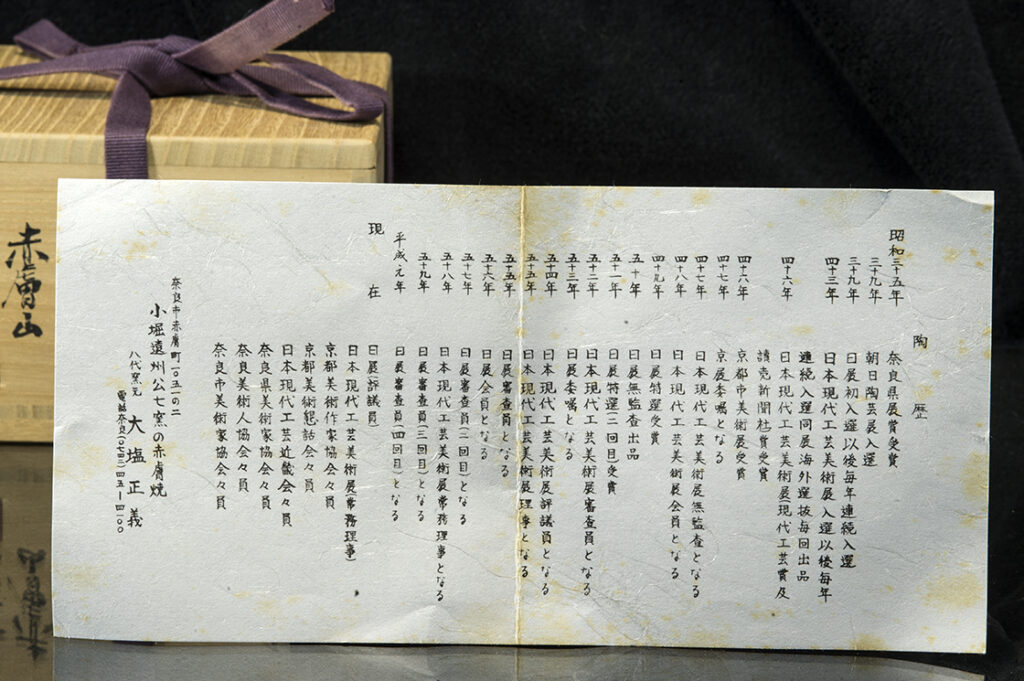 陶歴
昭和三十五年 奈良県展賞受賞
三十九年 朝日陶芸展入選
三十九年 日展初入選以後毎年連続入選
四十三年 日本現代工芸美術展入選以後毎年
連続入選同展海外選抜毎回出品
四十六年 日本現代工芸美術展(現代工芸賞及
読売新聞社賞)受賞
四十六年 京都市美術展受賞
四十七年 京展委嘱となる
四十七年 日本現代工芸美術展無監査となる
四十八年 日本現代工芸美術展会員となる
四十九年 日展特選受賞
五十年 日展無監査出品
五十一年 日展特選(二回目)受賞
五十二年 日本現代工芸美術展審査員となる
五十三年 日展委嘱となる
五十四年 日本現代工芸美術展評議員となる
五十五年 日本現代工芸美術展理事となる
五十五年 日展審査員となる
五十六年 日展会員となる
五十七年 日展審査員(二回目)となる
五十八年 日本現代工芸美術展常務理事となる
五十九年 日展審査員(三回目)となる
平成元年 日展審査員(四回目)となる
現在 日展評議員
日本現代工芸美術展常務理事
京都美術作家協会々員
京都美術懇話会々員
日本現代工芸近畿会々員
奈良県美術家協会々員
奈良美術人協会々員
奈良市美術家協会々員
奈良市赤膚町一〇五一の二
小堀遠州公七窯の赤膚焼
八代窯元 大塩正義
電話奈良(〇七四二)四五―四一〇〇
赤膚山